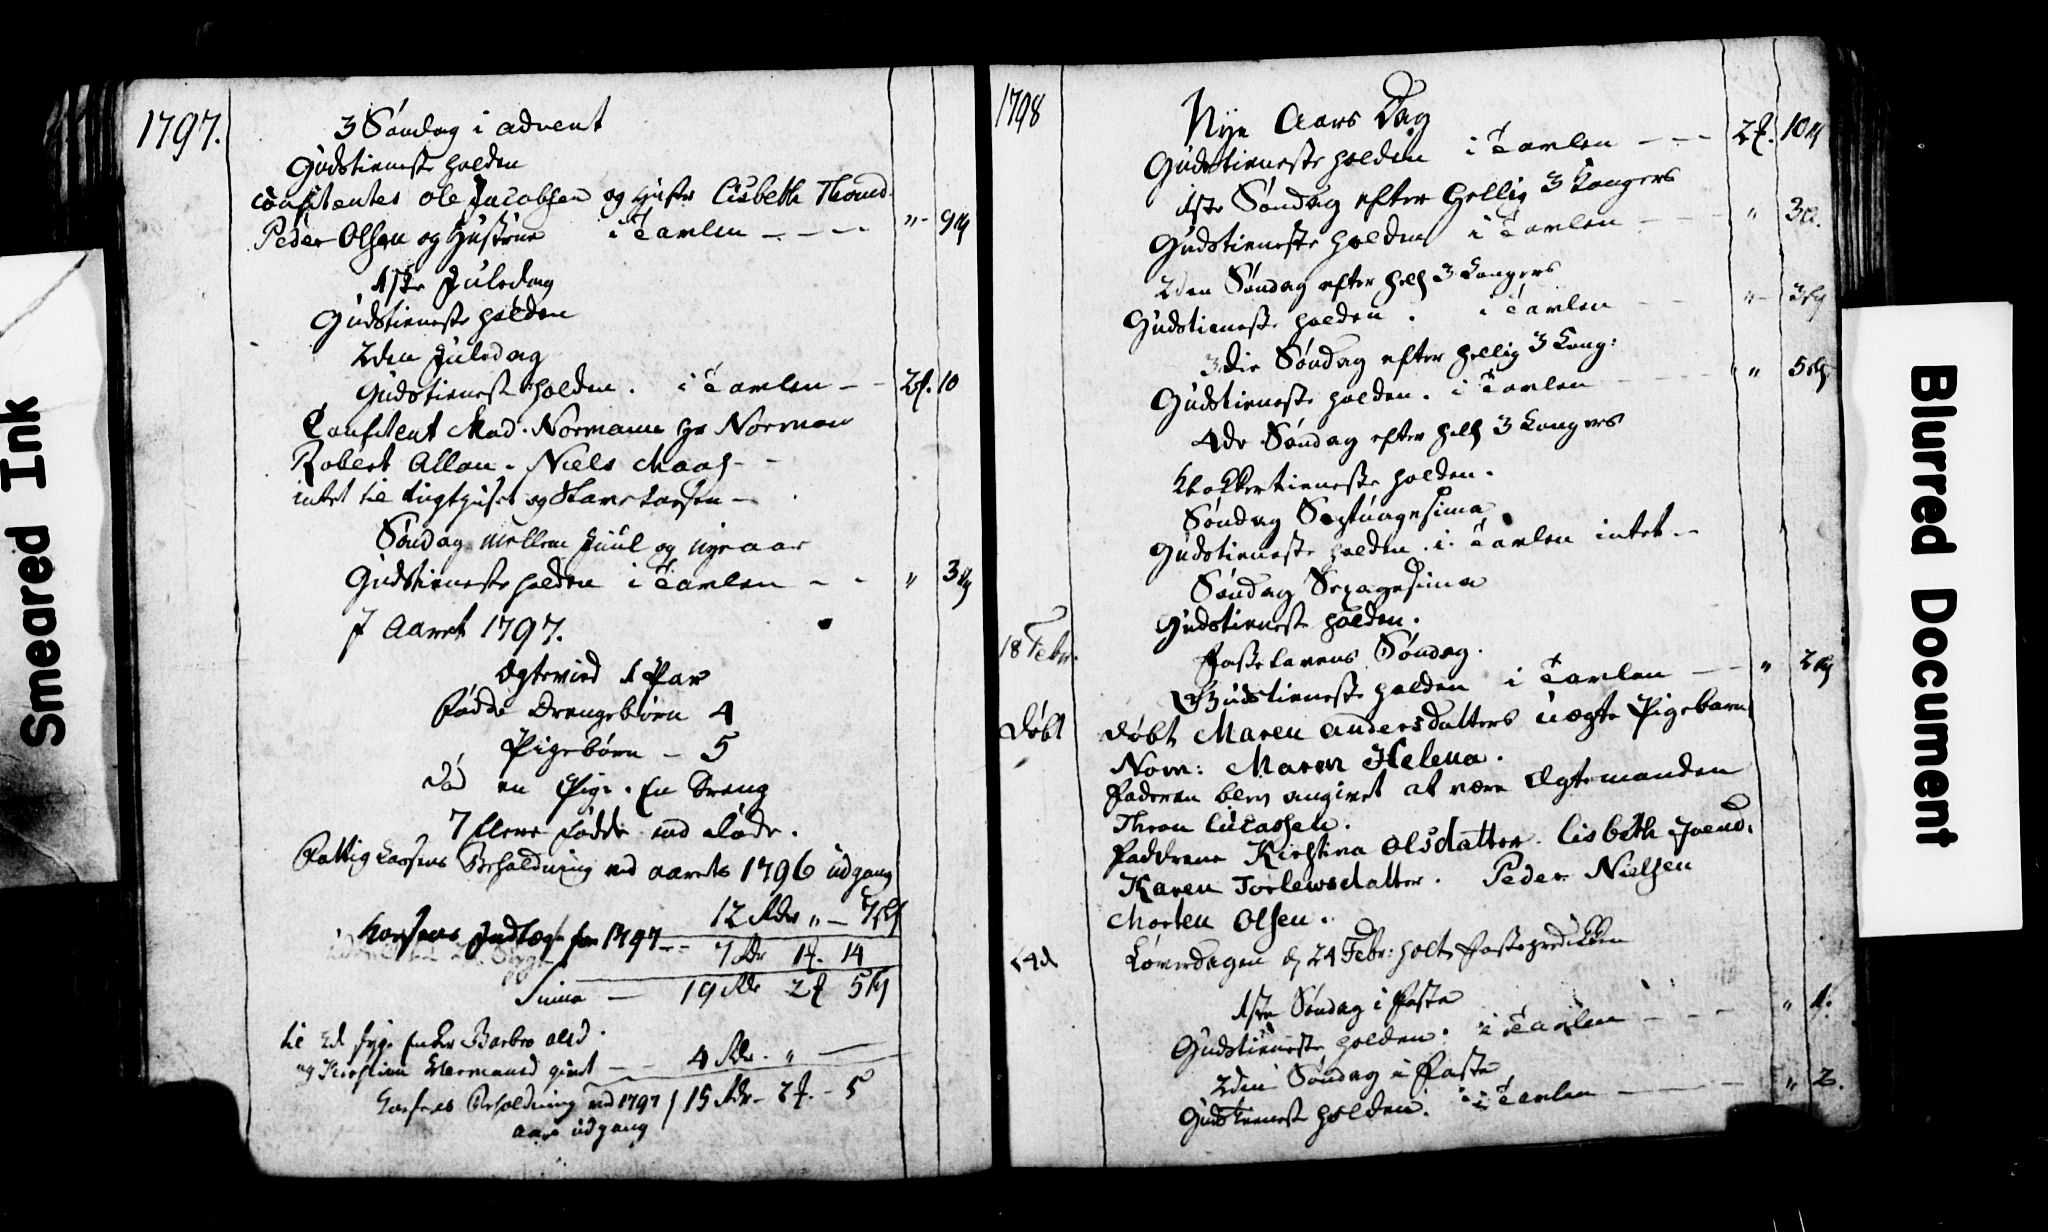 Smeared Ink
1797.
3 Søndag i advent
Gudstieneste holden
Confitentes Ole Jacobsen og Hustr Lisbeth Thomd
Peder Olsen og Hustrue i Tavlen - - - - " - 9 ß
1ste Juledag
Gudstieneste holden
2den Juledag
Gudstieneste holden. i Tavlen - - 2 10
Confitent Mad. Normann Hr Norman
Robert Allan. Niels Maas - -
intet til tugthuset og
Søndag mellem Juul og nyeaar
Gudstieneste holden i Tavlen - - " 3 ß
I Aaret 1797.
Ægtevied 1 Par
Fødde Drengebørn 4
Pigebørn - 5
Død en Pige. En Dreng
7 flere fødde end døde.
Fattig Cassens Beholdning ved aarets 1796 udgang
12 Rdr " -
Cassens Indtægt for 1797 - - 7 Rdr 1 14
Summa - 19 Rdr 2 5 ß
til Barbro olsd.
og Kirstine givet - - 4 Rdr. "
Cassens Beholdning ved 1797 15 Rdr - 2 - 5
aars udgang
1798
Nye Aars Dag
Gudstieneste holden i Tavlen - - - 2 10 ß
1ste Søndag efter Hellig 3 Kongers
Gudstieneste holden i Tavlen - - - " 3 ß.
2den Søndag efter Hell 3 Kongers
Gudstieneste holden. i Tavlen - - " - 3 ß
3die Søndag efter Hellig 3 Kong:
Gudstieneste holden. i Tavlen - - - " 5 ß
4de Søndag efter Hell 3 Kongers
Klokkertieneste holden.
Søndag Septuagesima
Gudstieneste holden. i Tavlen intet. -
Søndag Sexagesima
Gudstieneste holden.
18 Febr. Fastelavens Søndag.
Gudstieneste holden i Tavlen - - " 2 ß
Døbt Døbt Maren Andersdatters uægte Pigebarn
Nom: Maren Helena.
Faderen blev angivet at være Ægtemanden
Thron Lucassen.
Faddrene Kirstina Olsdatter. Lisbeth
Karen Torlewsdatter. Peder Nielsen
Morten Olsen.
Løverdagen d 24 Febr: holt Fasteprediken
1ste Søndag i Faste
Gudstieneste holden. i Tavlen - - - " 1.
2den Søndag i Faste
Gudstieneste holden. i Tavlen - - - " 2.
Blurred Document